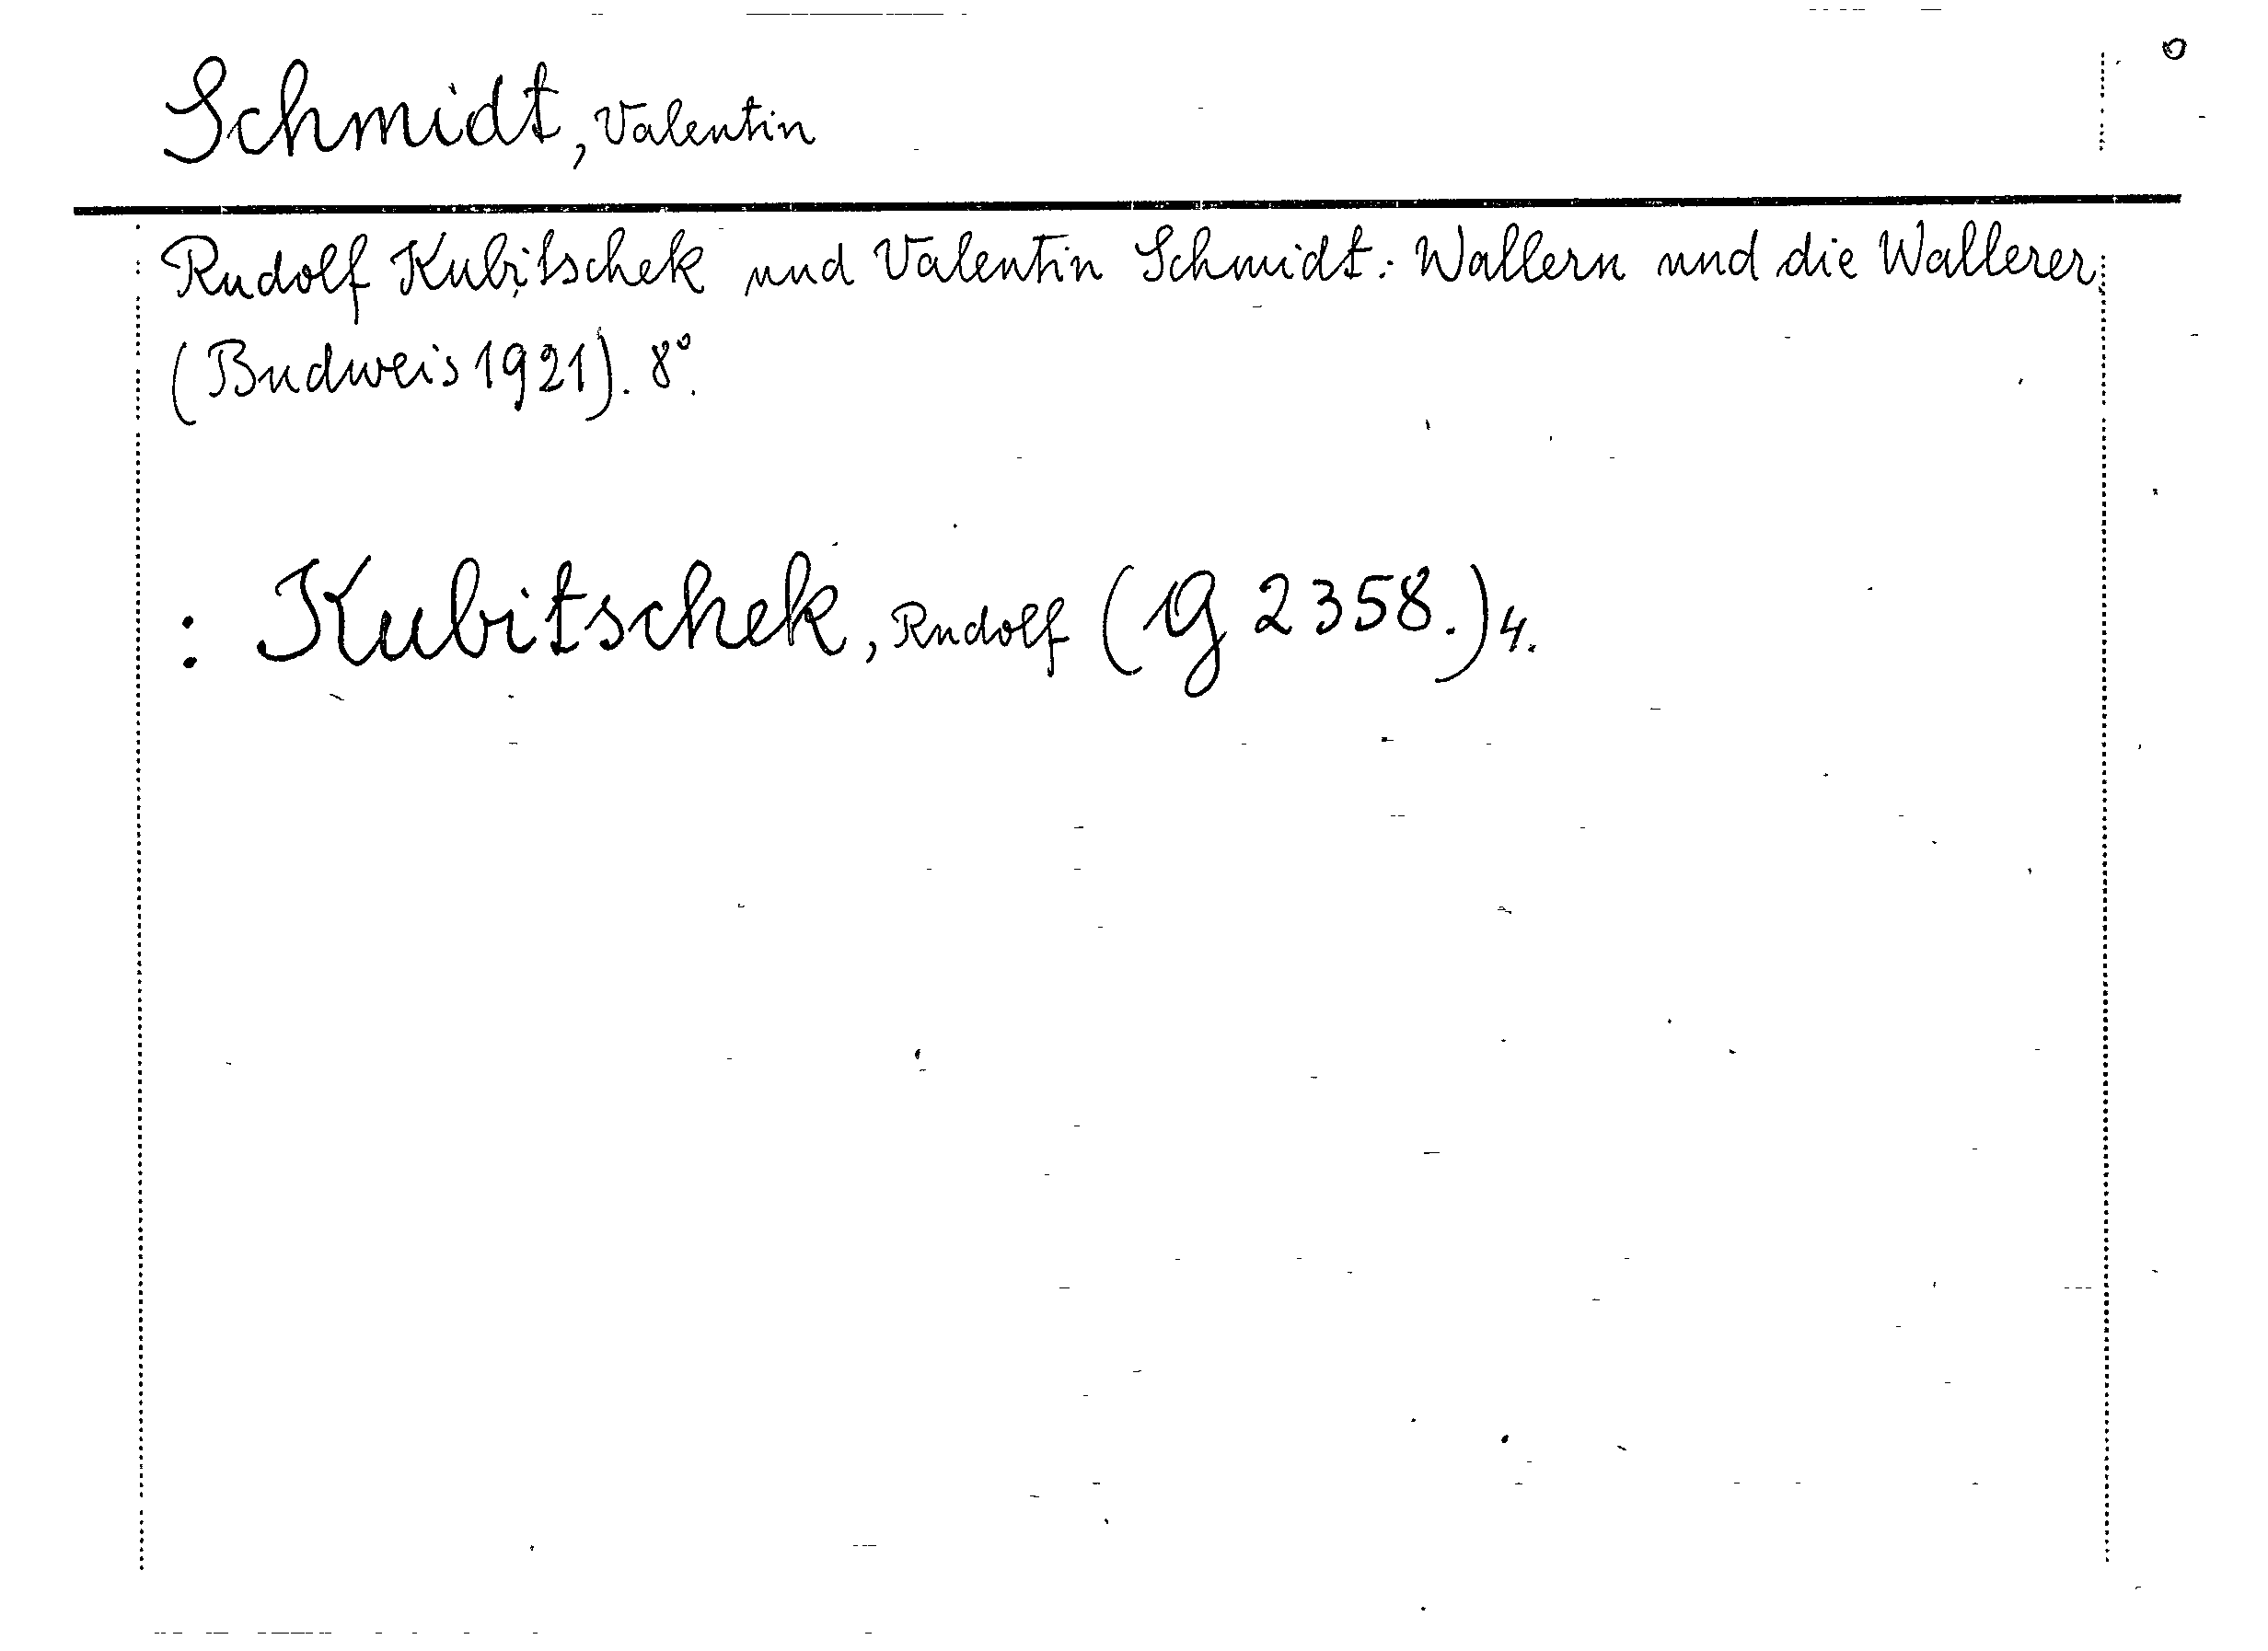 Schmidt, Valentin
Rudolf Kubitschek und Valentin Schmidt: Wallern und die Wallerer.
(Budweis 1921). 8°.
: Kubitschek, Rudolf (G 2358.) 4.